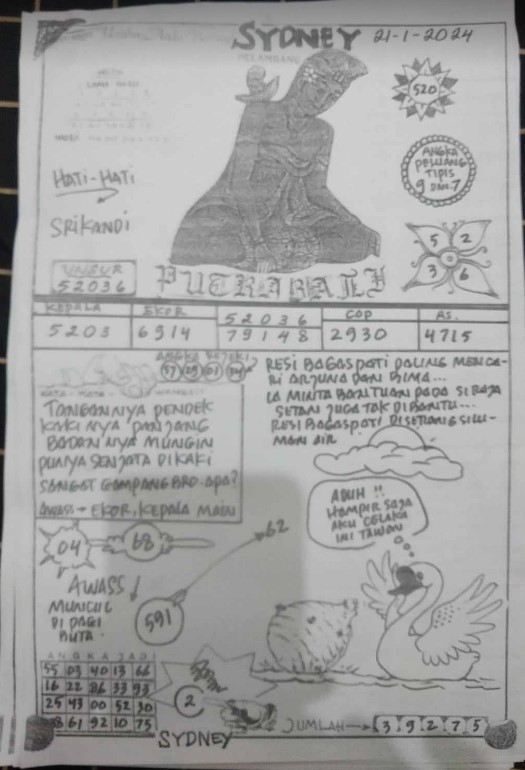 SYDNEY 21-1-2024
MELAMBANG
520
ANGKA
PELUANG
TIPIS
9 DAN 7
HATI-HATI
SRIKANDI
5 2
3 6
UNSUR
52036
PUTRA BALI
KEPALA EKOR 52036 COP AS.
5203 6914 79148 2930 4715
ANGKA REJEKI
RESI BAGASPATI PALING MENCA-
RI ARJUNA DAN BIMA...
IA MINTA BANTUAN PADA SI RAJA
SETAN JUGA TAK DIBANTU...
RESI BAGASPATI DISERANG SILU-
MAN AIR
TANGANNYA PENDEK
KAKINYA PANJANG
BADANNYA MUNGIN
PUNYA SENJATA DIKAKI
SANGAT GAMPANG BRO. APA?
AWASS → EKOR, KEPALA MAIN
ADUH !!
HAMPIR SAJA
AKU CELAKA
INI TAWON
04 68 62
AWASS
MUNCUL
DI PAGI
BUTA.
591
ANGKA JADI
55 03 40 13 66
16 22 86 33 93
25 43 00 52 30
61 92 10 75
2
JUMLAH → 3 9 2 7 5
SYDNEY